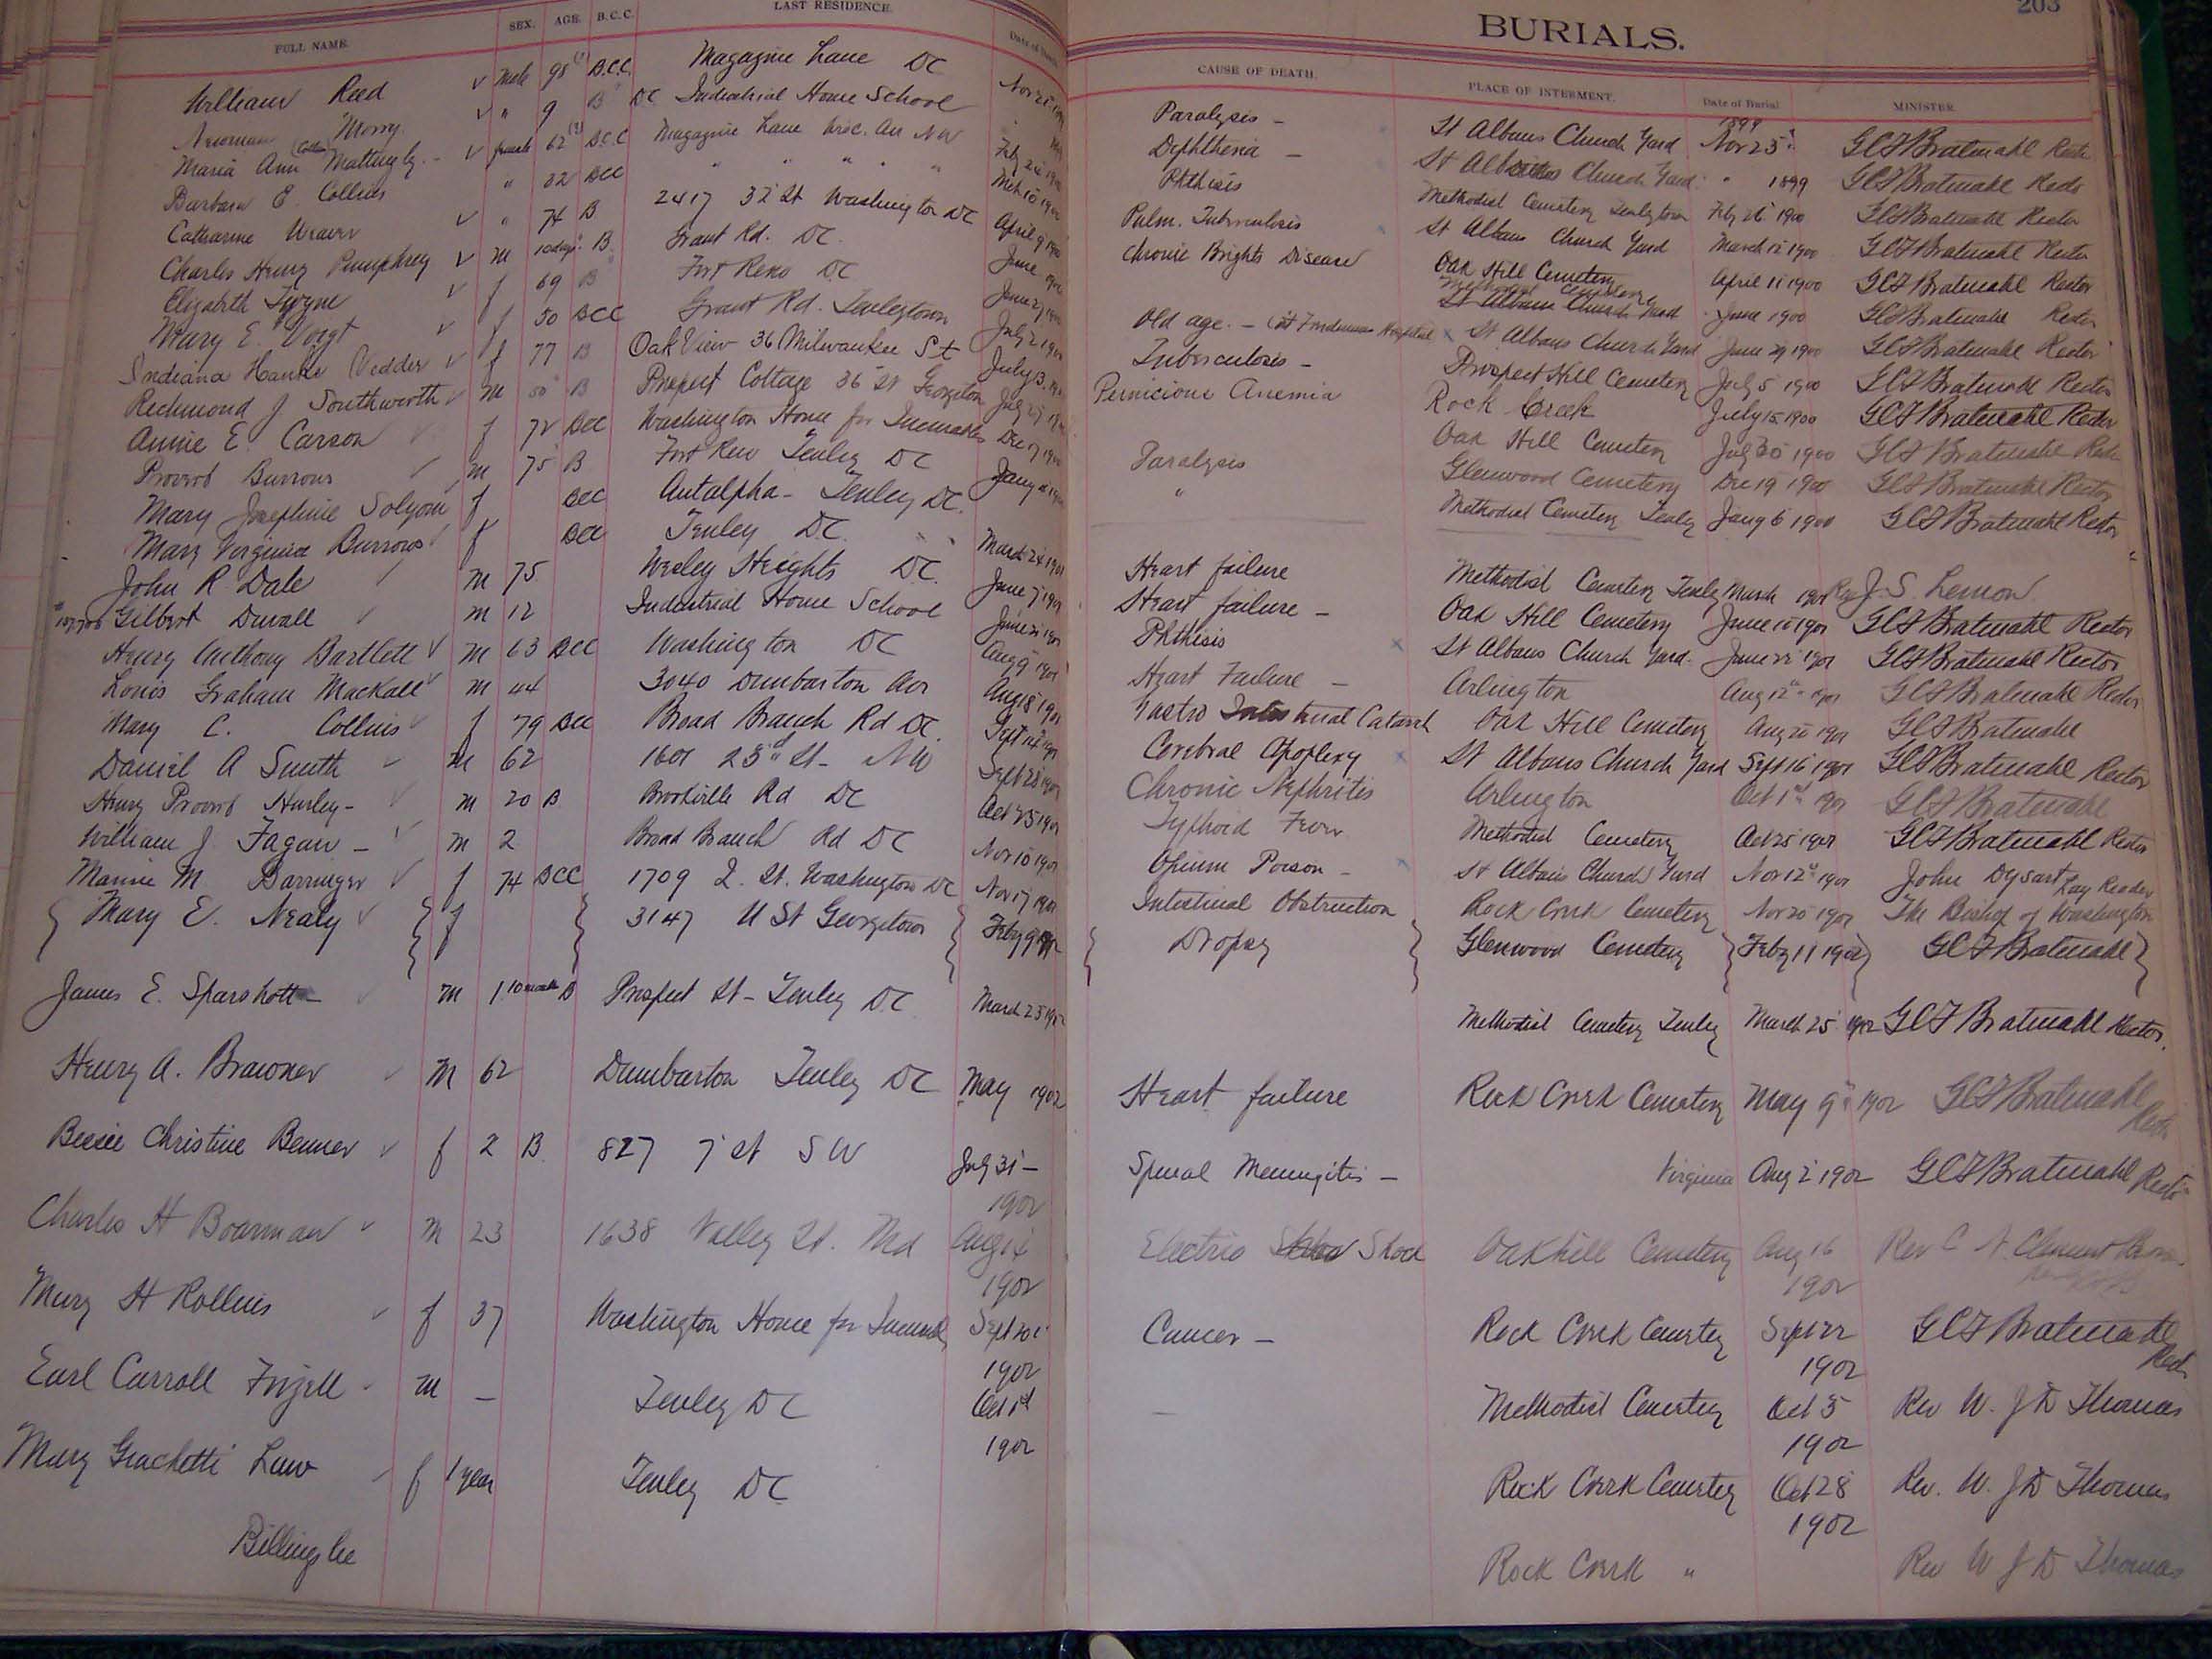 203
BURIALS.
FULL NAME. SEX. AGE. B.C.C. LAST RESIDENCE. CAUSE OF DEATH. PLACE OF INTERMENT. Date of Burial MINISTER.
William Reed Male 98 B.C.C. Magazine Lane DC Paralysis - St Albans Church Yard 1899 Nov 25 GCF Bratenahl Rector
Newman Morry " 9 B DC Industrial Home School Diphtheria - St Albans Church Yard " 1899 GCF Bratenahl Rector
Maria Ann Mattingly female 62 (?) BCC Magazine Lane Wisc. Av NW Feby 24 Phthisis Methodist Cemetery Tenleytown Feby 26 1900 GCF Bratenahl Rector
Barbara E. Collins " 32 BCC " " " " " Mch 10 1900 Pulm. Tuberculosis St Albans Church Yard March 12 1900 GCF Bratenahl Rector
Catharine Weaver " 74 B 2417 32 St Washington DC April 9 1900 Chronic Brights Disease Oak Hill Cemetery April 11 1900 GCF Bratenahl Rector
Charles Henry Pumphrey m 10 days B. Grant Rd. DC. June 1900 Methodist Cemetery St Albans Church Yard June 1900 GCF Bratenahl Rector
Elizabeth Tyyne f 69 B Fort Reno DC June 27 1900 Old age. - (at Freedmans Hospital St Albans Church Yard June 29 1900 GCF Bratenahl Rector
Mary E. Voigt f 50 BCC Grant Rd. Tenleytown July 2 1900 Tuberculosis - Prospect Hill Cemetery July 5 1900 GCF Bratenahl Rector
Indiana Hanke Vedder f 77 B Oak View 36 Milwaukee St July 13. Pernicious Anemia Rock Creek July 15 1900 GCF Bratenahl Rector
Richmond J Southworth m 50 B Prospect Cottage 36 St Georgeton July 27 Oak Hill Cemetery July 30 1900 GCF Bratenahl Rector
Annie E. Carson f 72 BCC Washington Home for Incurables Dec 17 1900 Paralysis Glenwood Cemetery Dec 19 1900 GCF Bratenahl Rector
Proverb Burrows m 75 B Fort Reno Tenley DC Jany " Methodist Cemetery Tenley Jany 6 1900 GCF Bratenahl Rector
Mary Josephine Solyom f BCC Autalpha - Tenley DC.
Mary Virginia Burrows f BCC Tenley DC. March 24 1901 Heart failure Methodist Cemetery Tenley March 1901 Rev J. S. Lemon
John R Dale m 75 Wesley Heights DC. June 7 1901 Heart failure - Oak Hill Cemetery June 10 1901 GCF Bratenahl Rector
Gilbert Duvall m 12 Industrial Home School June 21 1901 Phthisis St Albans Church Yard. June 22 1901 GCF Bratenahl Rector
Henry Anthony Bartlett m 63 BCC Washington DC Aug 9 1901 Heart Failure - Arlington Aug 12th 1901 GCF Bratenahl Rector
Louis Graham Mackall m 44 3040 Dumbarton Av Aug 18 1901 Gastro Intestinal Catarrh Oak Hill Cemetery Aug 20 1901 GCF Bratenahl
Mary C. Collins f 79 BCC Broad Branch Rd DC. Sept 14 1901 Cerebral Apoplexy St Albans Church Yard Sept 16 1901 GCF Bratenahl Rector
Daniel A Smith m 62 1601 23rd St - NW Sept 28 1901 Chronic Nephritis Arlington Oct 1st 1901 GCF Bratenahl
Henry Proverb Hurley - m 20 B Brookville Rd DC Oct 23 1901 Typhoid Fever Methodist Cemetery Oct 25 1901 GCF Bratenahl Rector
William J Fagan - m 2 Broad Branch Rd DC Nov 10 1901 Opium Poison - St Albans Church Yard Nov 12th 1901 John Dysart Lay Reader
Mannie M Barringer f 74 BCC 1709 I. St. Washington DC Nov 17 1901 Intestinal Obstruction Rock Creek Cemetery Nov 20 1901 The Bishop of Washington
Mary E. Nealy f 3147 U St Georgetown Feby 9 1902 Dropsy Glenwood Cemetery Feby 11 1902 GCF Bratenahl
James E. Sparshott - m 1 10 months B Prospect St - Tenley DC March 23 1902 Methodist Cemetery Tenley March 25 1902 GCF Bratenahl Rector.
Henry A. Brawner m 62 Dumbarton Tenley DC May 1902 Heart failure Rock Creek Cemetery May 9th 1902 GCF Bratenahl Rector
Bessie Christine Benner f 2 B 827 7 St SW July 31 - 1902 Spinal Meningitis - Virginia Aug 2 1902 GCF Bratenahl Rector
Charles H Boarman m 23 1638 Valley St. Md Aug 14 1902 Electric Shock Oakhill Cemetery Aug 16 1902 Rev C Clement Brown
Mary H Rollins f 37 Washington Home for Incurab Sept 20 1902 Cancer - Rock Creek Cemetery Sept 22 1902 GCF Bratenahl Rector
Earl Carroll Frizzell m - Tenley DC Oct 1st 1902 - Methodist Cemetery Oct 3 1902 Rev W. J D Thomas
Mary Giachetti Law f 1 year Tenley DC Rock Creek Cemetery Oct 28 1902 Rev. W. J D Thomas
Billingslee Rock Creek " Rev W J D Thomas